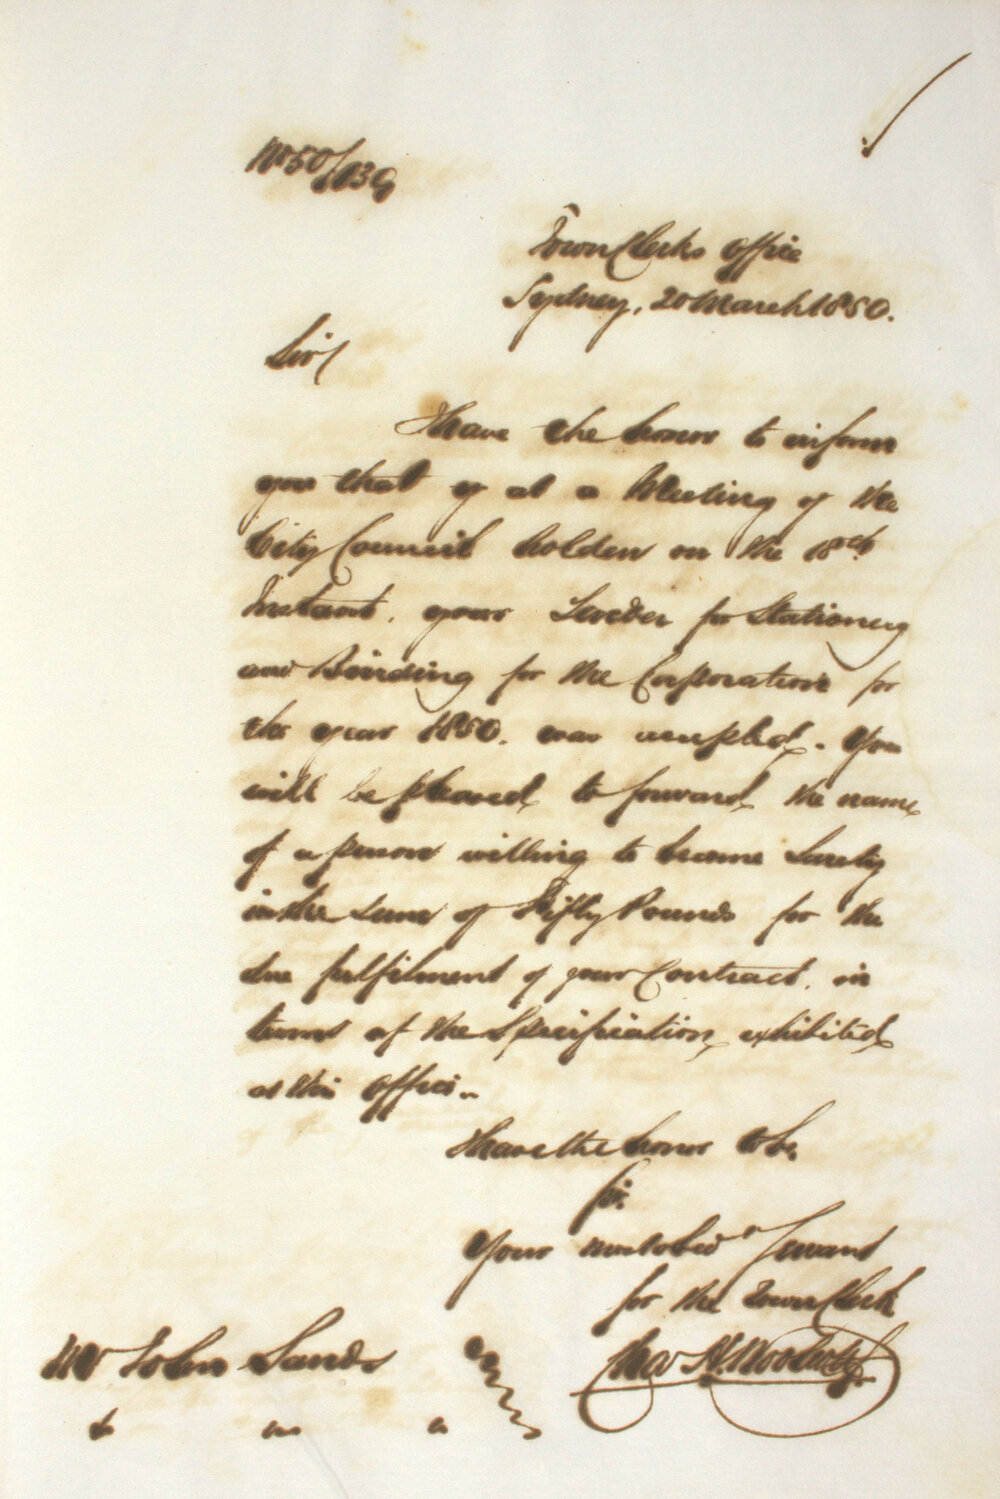 No 50/139
Town Clerks Office
Sydney, 20 March 1850.
Sir,
I have the honor to inform
you that at a Meeting of the
City Council holden on the 18th
Instant, your Tender for Stationery
and Binding for the Corporation for
the year 1850, was accepted. You
will be pleased to forward the name
of a person willing to become Surety
in the Sum of Fifty Pounds for the
due fulfilment of your Contract, in
terms of the Specification exhibited
at this Office.
I have the honor to be,
Sir,
Your most obed. Servant
for the Town Clerk
Chas H. Woolcott
Mr John Sands